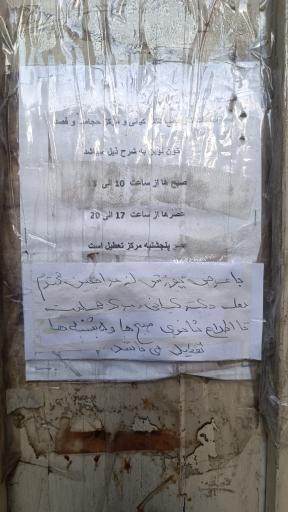 کیانی و مرکز حجامت و فصد
خون نوین به شرح ذیل میباشد
صبح ها از ساعت 10 الی 13
عصرها از ساعت 17 الی 20
عصر پنجشنبه مرکز تعطیل است
با عرض پوزش از مراجعین محترم
بعلت دکتر کیانی مرکز حجامت
تا اطلاع ثانوی صبح‌ها و پنجشنبه‌ها
تعطیل می باشد.